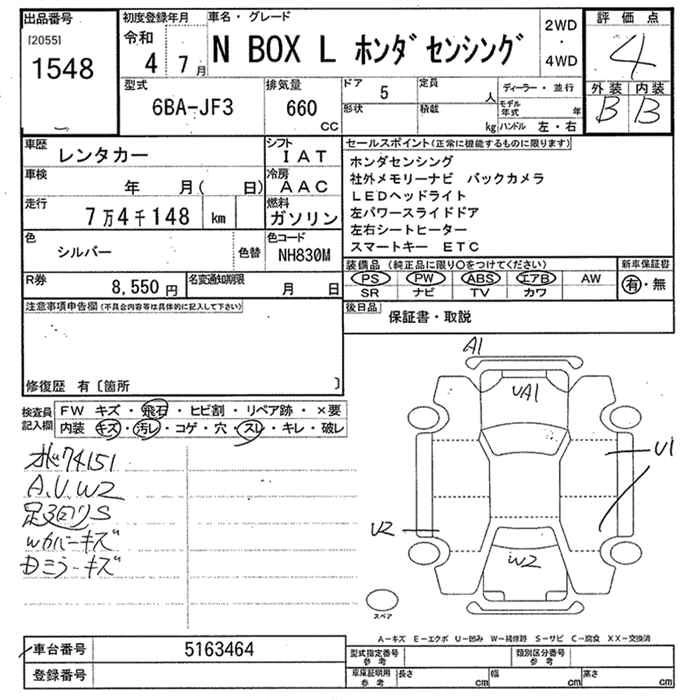 出品番号
[2055]
1548
初度登録年月
令和
4 7月
車名・グレード
N BOX L ホンダセンシング
2WD
・
4WD
評価点
4
外装 内装
B B
型式
6BA-JF3
排気量
660
cc
ドア
5
形状
定員
人
積載
kg
ディーラー・並行
モデル年式 年
ハンドル 左・右
車歴
レンタカー
シフト
IAT
車検
年 月( 日)
冷房
AAC
走行
7万4千148 km
燃料
ガソリン
色
シルバー
色替
色コード
NH830M
R券
8,550円
名変通知期限
月 日
セールスポイント(正常に機能するものに限ります)
ホンダセンシング
社外メモリーナビ バックカメラ
LEDヘッドライト
左パワースライドドア
左右シートヒーター
スマートキー ETC
装備品(純正品に限り○をつけてください)
PS PW ABS エアB AW
SR ナビ TV カワ
新車保証書
有・無
後日品
保証書・取説
注意事項申告欄(不具合内容等は具体的に記入して下さい)
修復歴 有〔箇所 〕
検査員
記入欄
FW キズ・飛石・ヒビ割・リペア跡・×要
内装 キズ・汚レ・コゲ・穴・スレ・キレ・破レ
74151
A.U.W2
足回りS
Wカバーキズ
Dミラーキズ
A1
UA1
U1
U2
W2
スペア
A-キズ E-エクボ U-凹み W-補修跡 S-サビ C-腐食 XX-交換済
車台番号
5163464
登録番号
型式指定番号
参考
類別区分番号
参考
車庫証明用
参考
長さ cm
幅 cm
高さ cm